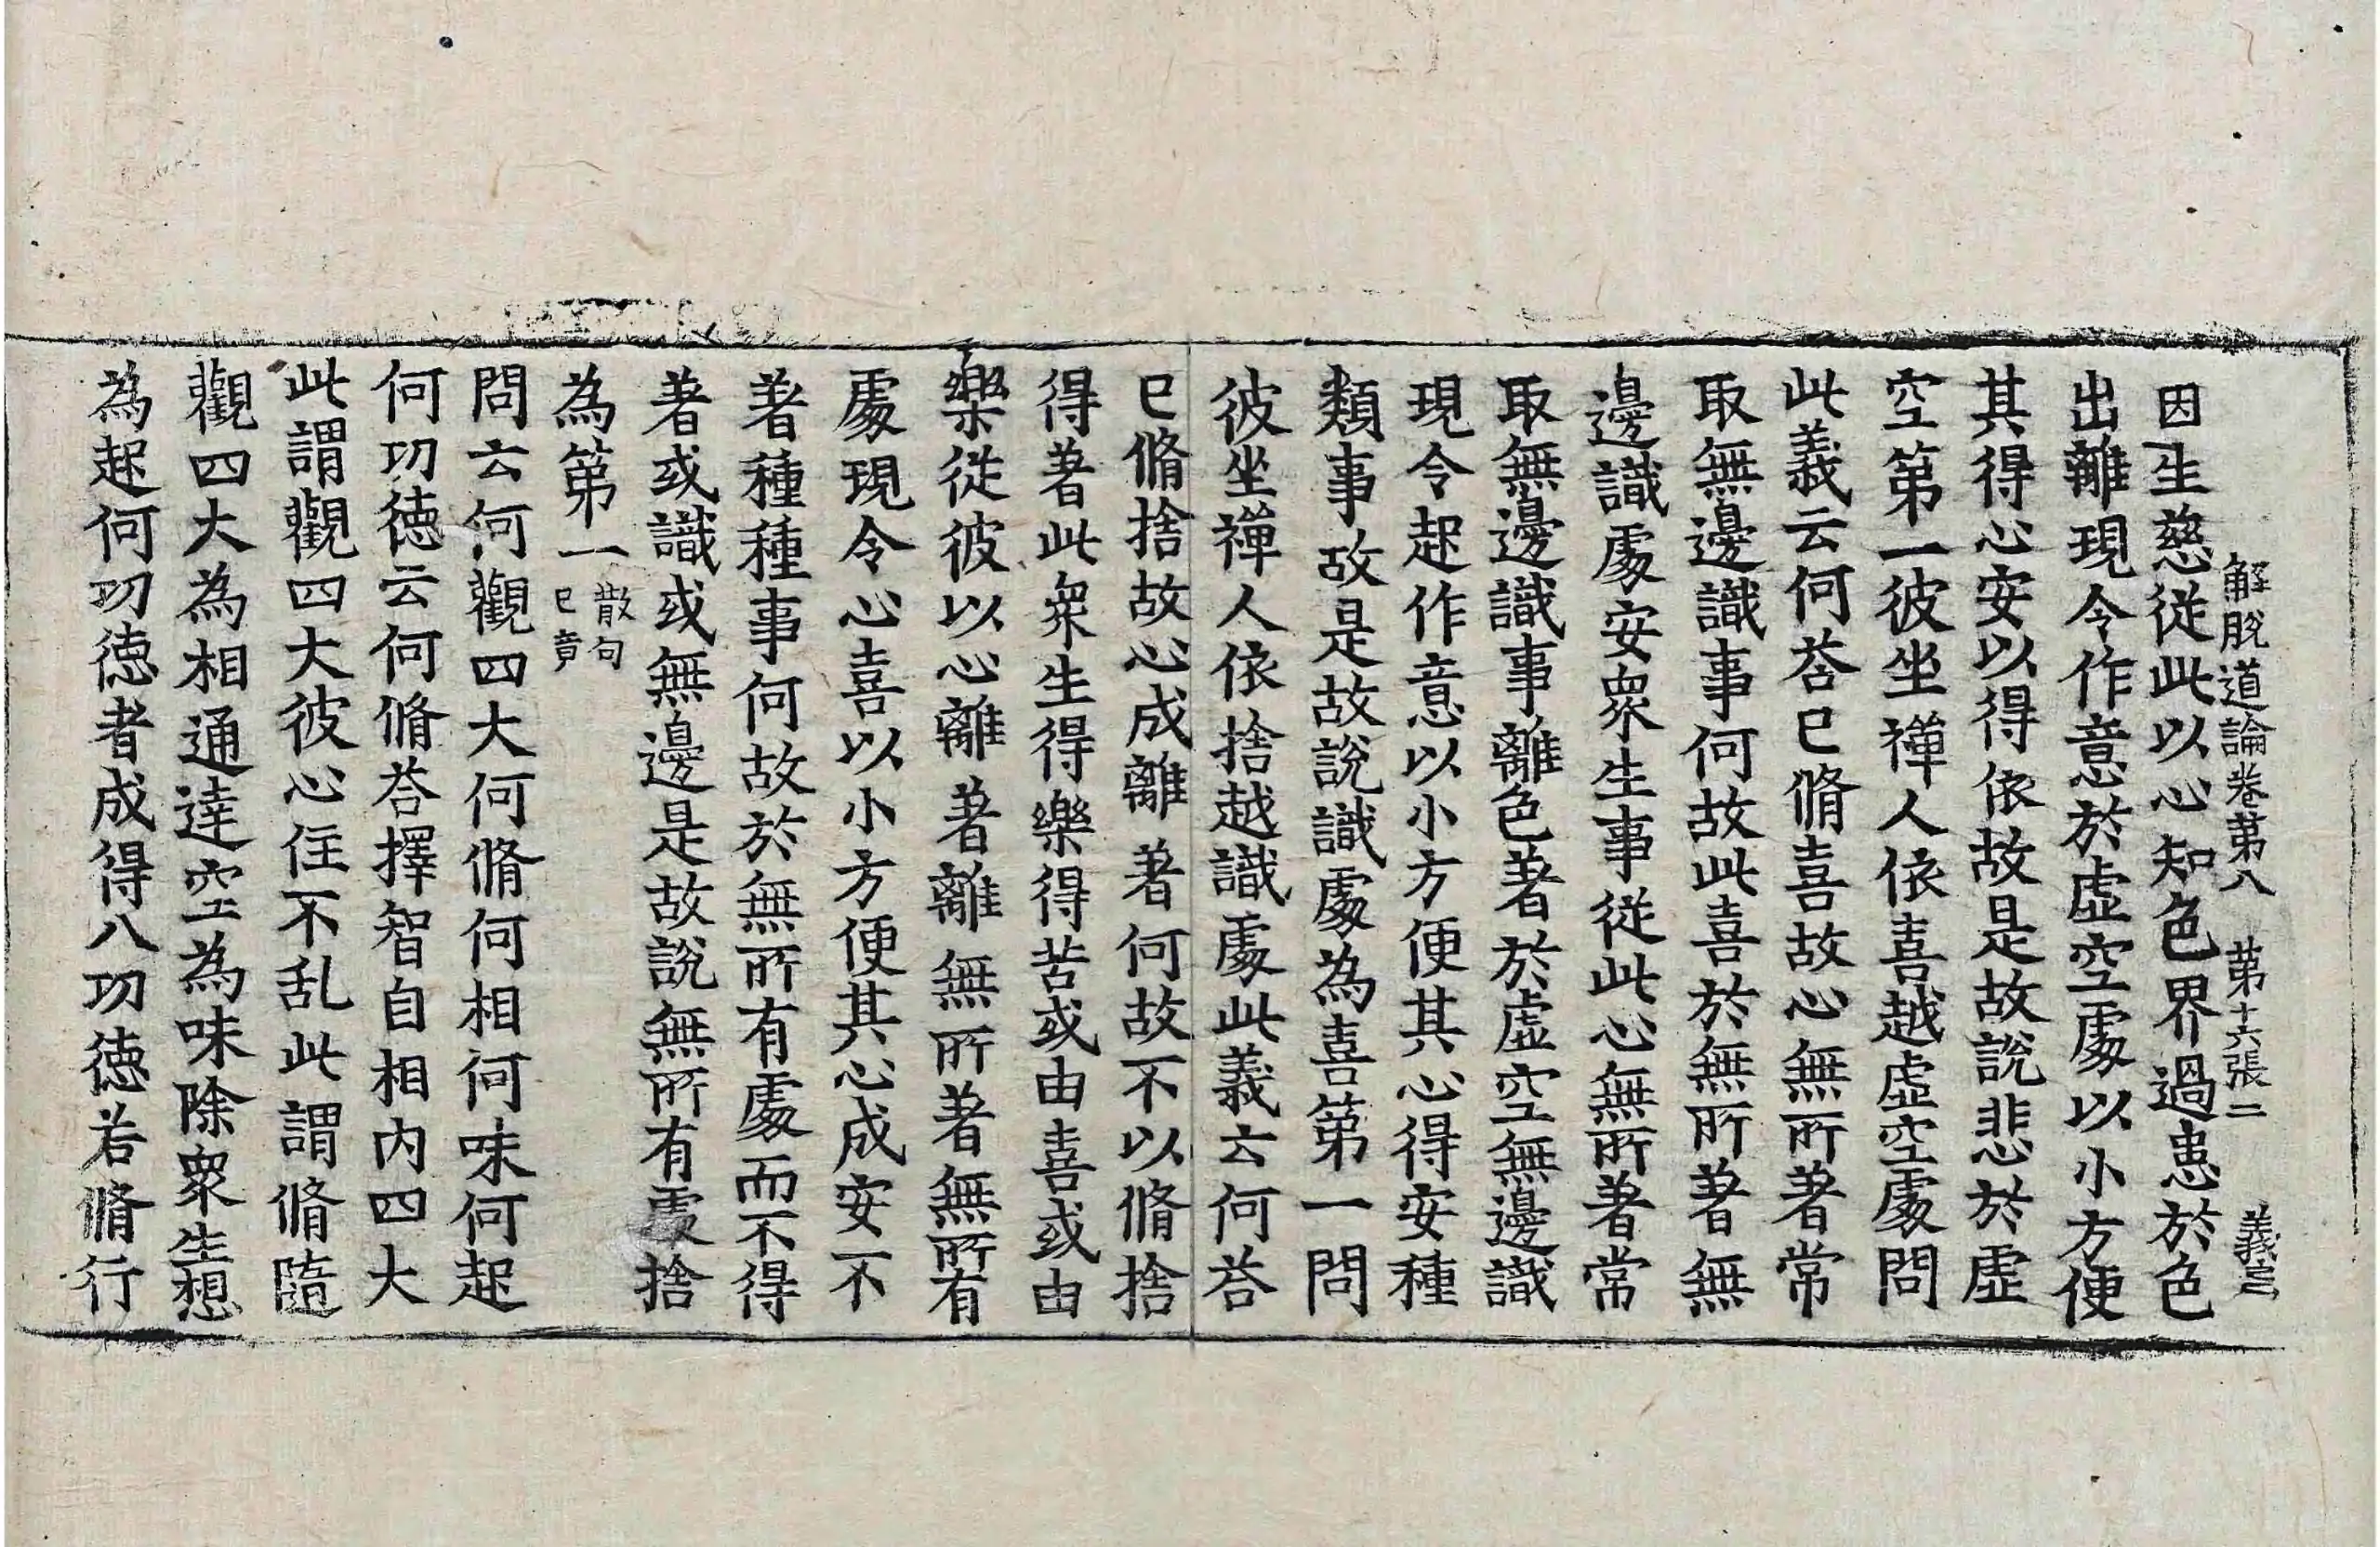 解脫道論卷第八　第十六張二　義
因生慈從此以心知色界過患於色
出離現令作意於虛空處以小方便
其得心安以得依故是故說悲於虛
空第一彼坐禪人依喜越虛空處問
此義云何荅已脩喜故心無所著常
取無邊識事何故此喜於無所著無
邊識處安衆生事從此心無所著常
取無邊識事離色著於虛空無邊識
現令起作意以小方便其心得安種
類事故是故說識處為喜第一問
彼坐禪人依捨越識處此義云何荅
已脩捨故心成離著何故不以脩捨
得著此衆生得樂得苦或由喜或由
樂從彼以心離著離無所著無所有
處現令心喜以小方便其心成安不
著種種事何故於無所有處而不得
著或識或無邊是故說無所有處捨
為第一散句已竟
問云何觀四大何脩何相何味何起
何功德云何脩荅擇智自相內四大
此謂觀四大彼心住不乱此謂脩隨
觀四大為相通達空為味除衆生想
為起何功德者成得八功德若脩行